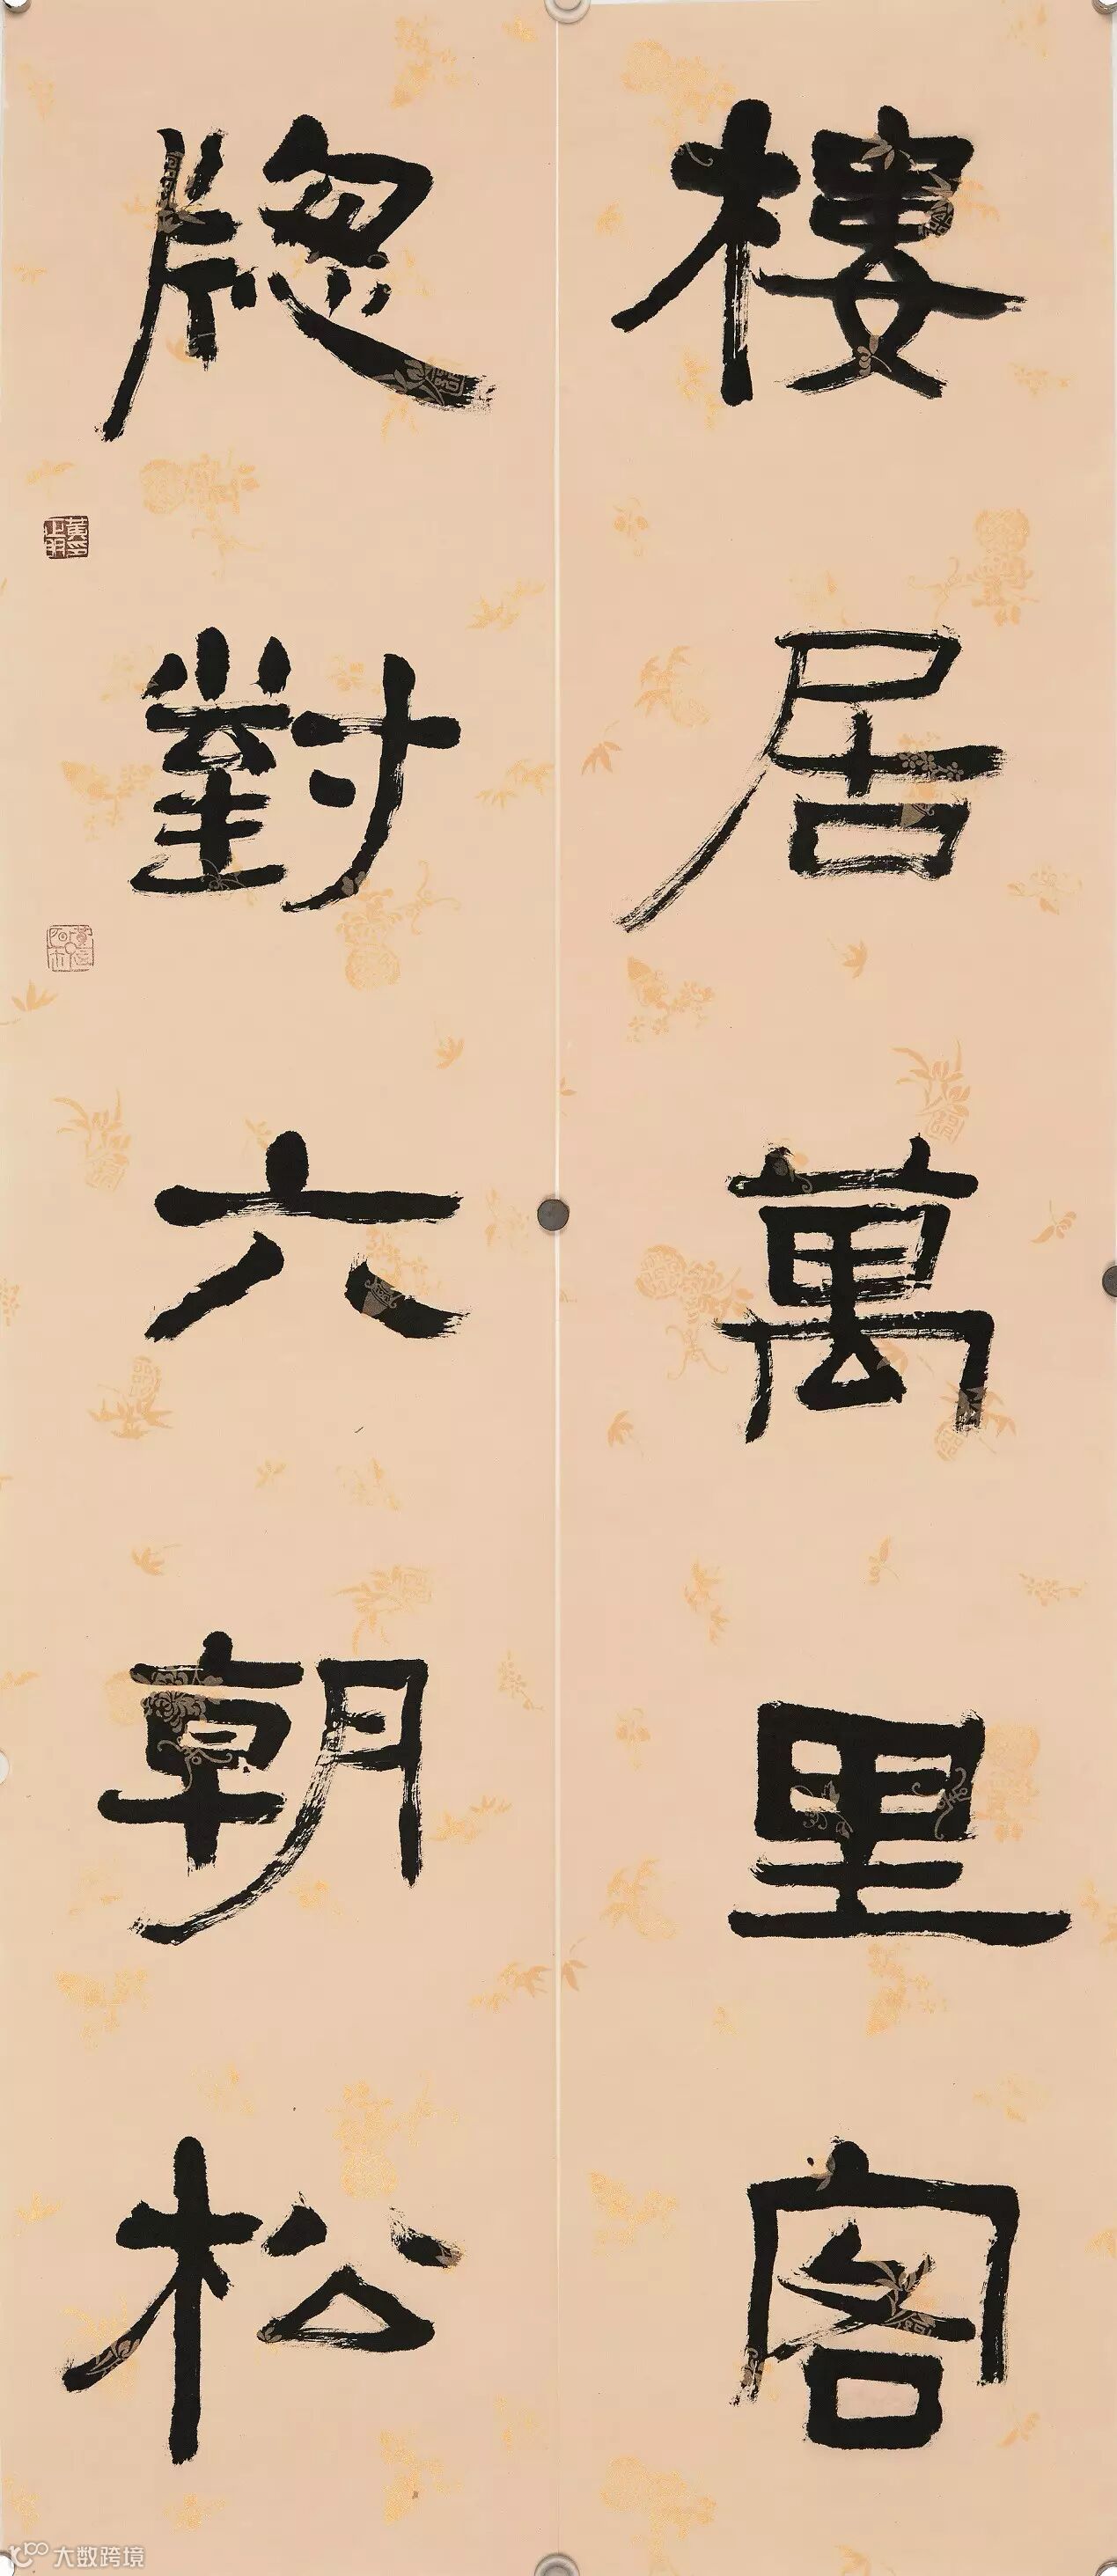 樓居萬里客
牕對六朝松
大数跨境